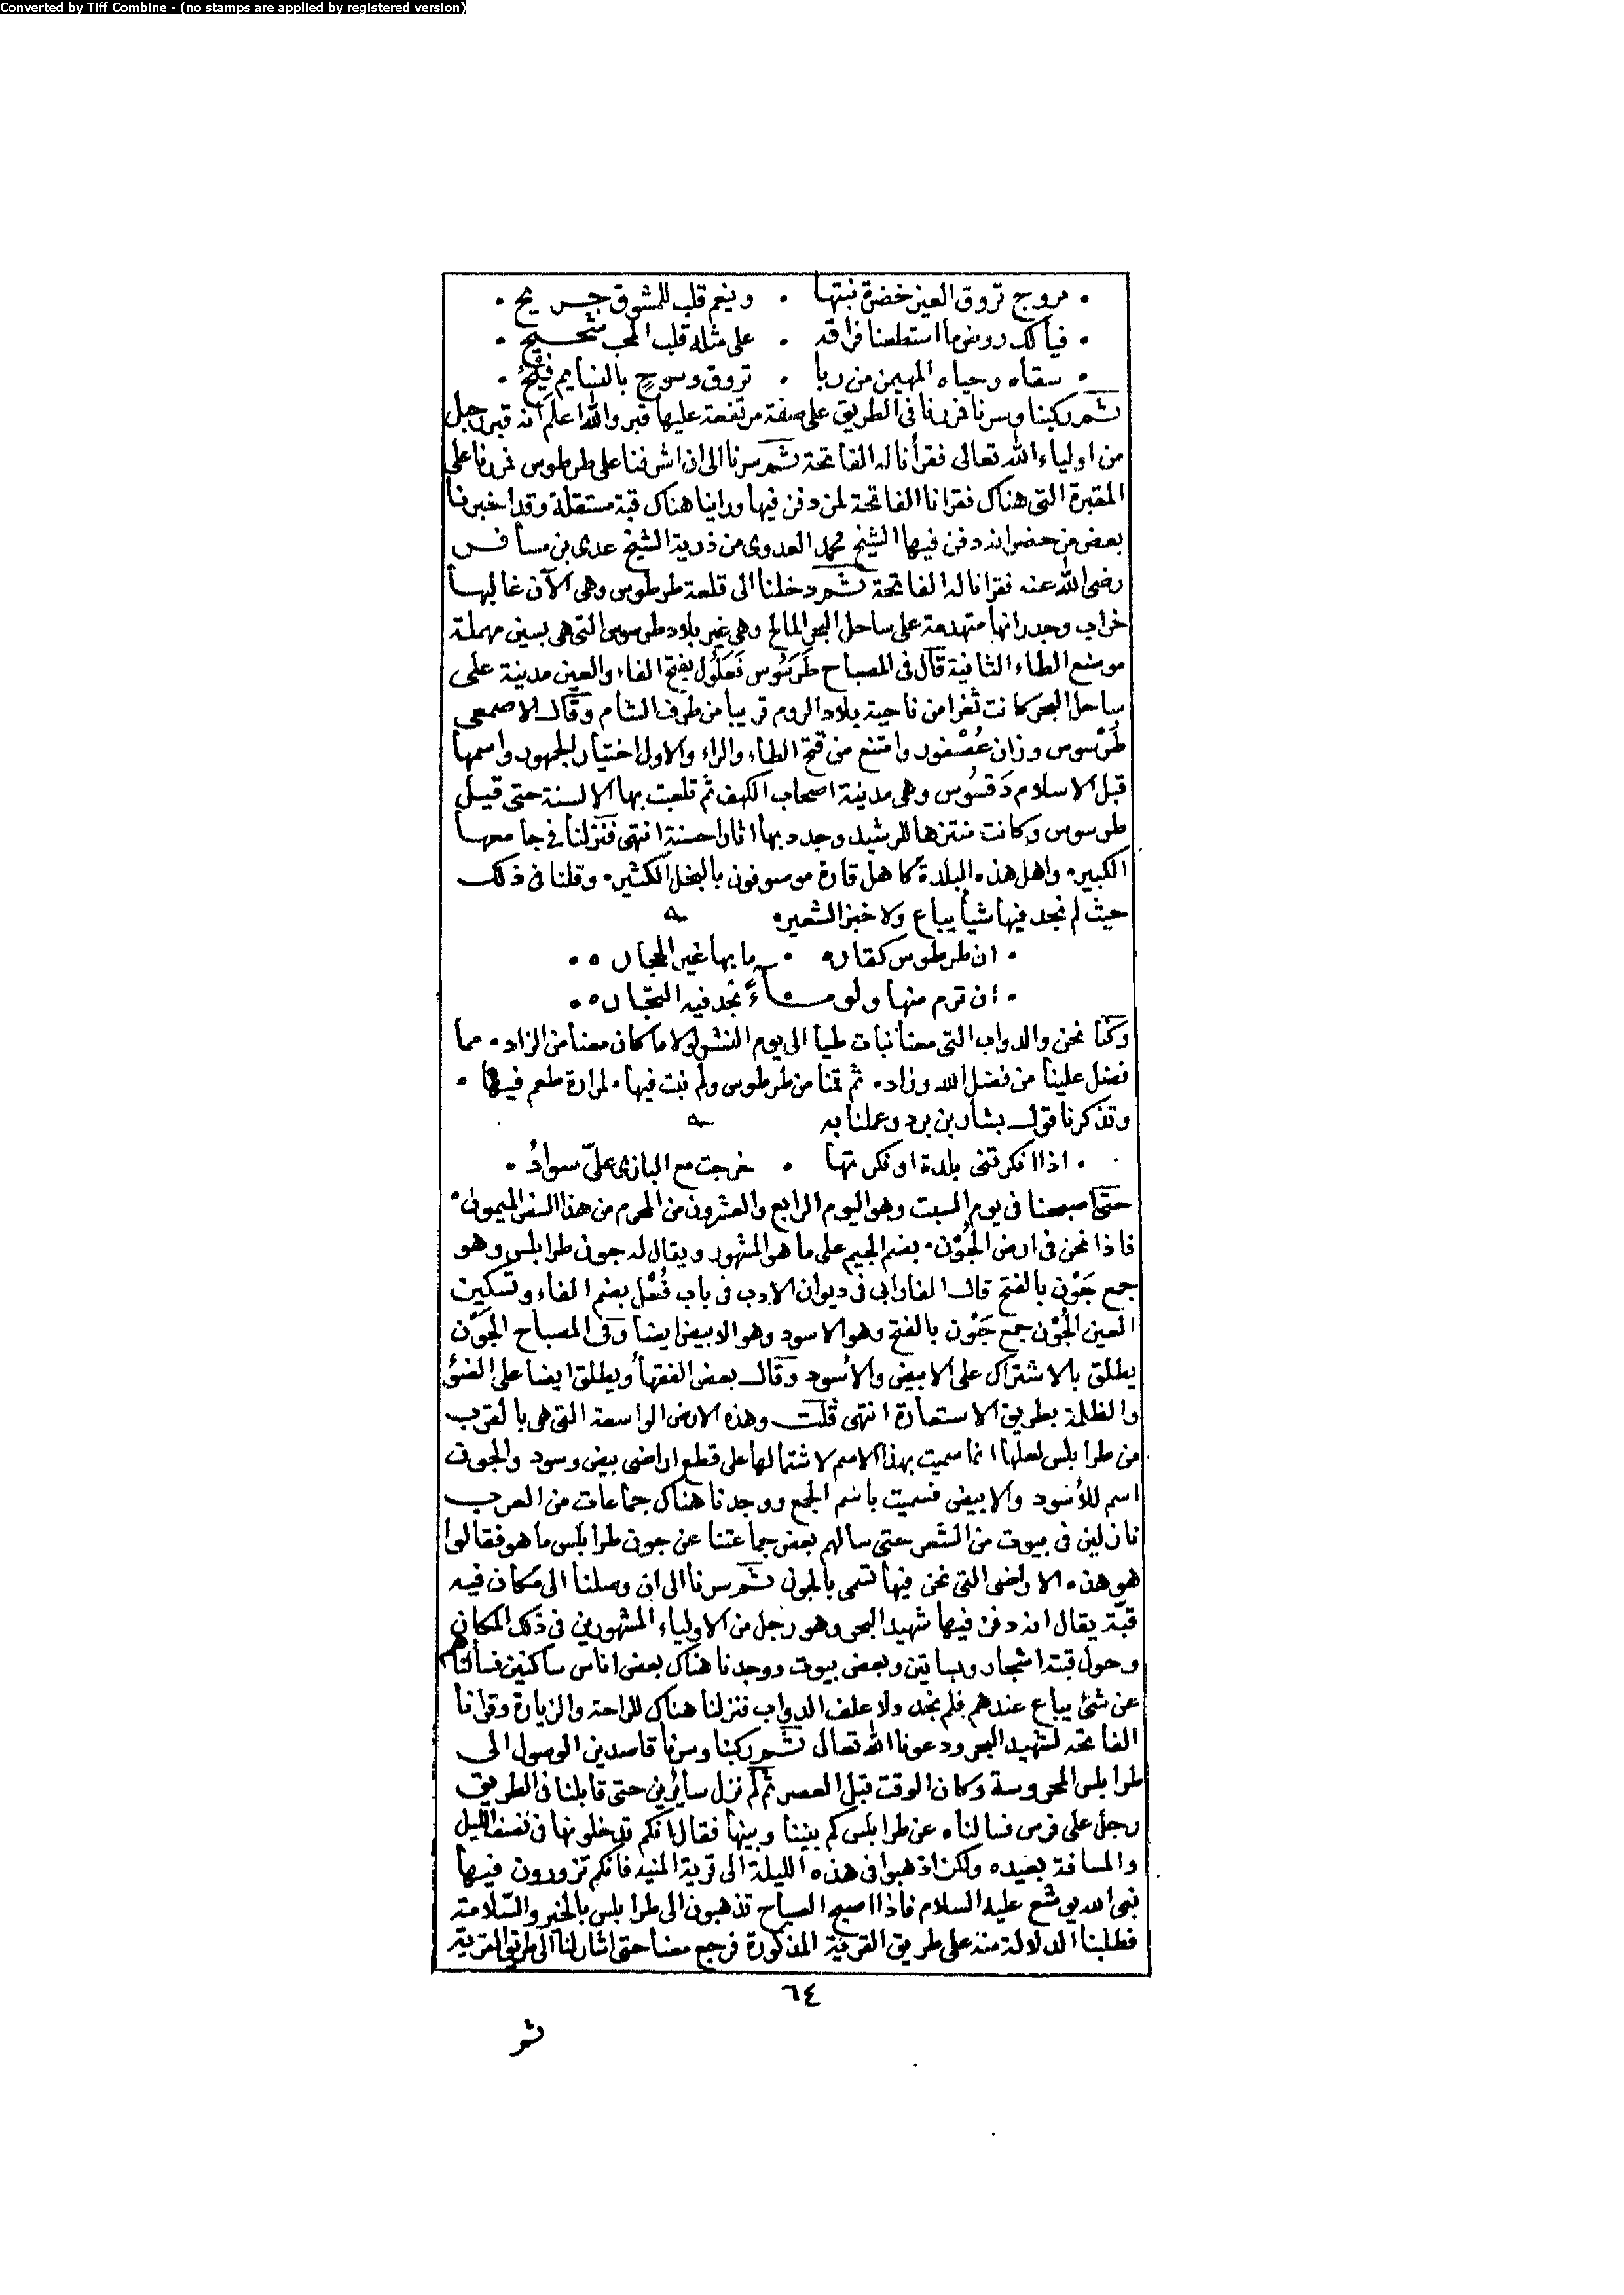 Converted by Tiff Combine - (no stamps are applied by registered version)
• مروج تروق العين خضرة نبتها • وينعم قلب للمشوق جريح •
• فيالك روض ما استطعنا فراقه • على مثله قلب المحب شحيح •
• سقاه وحياه المهيمن من ربا • تروق وسوح بالنسايم فيح •
ثم ركبنا وسرنا فمررنا في الطريق على صفة مرتفعة عليها قبر والله اعلم انه قبر رجل
من اولياء الله تعالى فقرأنا له الفاتحة ثم سرنا الى ان اشرفنا على طرطوس فمررنا على
المقبرة التي هناك فقرانا الفاتحة لمن دفن فيها وراينا هناك قبة مستقلة وقد اخبرنا
بعض من حضر انه دفن فيها الشيخ محمد العدوى من ذرية الشيخ عدى بن مسافر
رضى الله عنه فقرانا له الفاتحة ثم دخلنا الى قلعة طرطوس وهى الآن غالبها
خراب وجدرانها متهدمة على ساحل البحر المالح وهى غير بلاد طرسوس التى هى بسين مهملة
موضع الطاء الثانية قال فى المصباح طَرَسُوس فَعَلُول بفتح الفاء والعين مدينة على
ساحل البحر كانت ثغرا من ناحية بلاد الروم قريبا من طرف الشام وقال الاصمعى
طُرْسوس وزان عُصْفور وامتنع من فتح الطاء والراء والاول اختيار الجمهور واسمها
قبل الاسلام دَقسُوس وهى مدينة اصحاب الكهف ثم تلعبت بها الالسنة حتى قيل
طرسوس وكانت منتزها للرشيد وجدد بها اثارا حسنة انتهى فنزلنا في جامعها
الكبير • واهل هذه البلدة كاهل قارة موصوفون بالبخل الكثير • وقلنا فى ذلك
حيث لم نجد فيها شيأ يباع ولا خبز الشعير •
• ان طرطوس كقاره • ما بها غير الحجاره •
• ان ترم منها ولو مـاءً تجد فيه التجاره •
وكنا نحن والدواب التى معنا نبات طيا الى يوم النشر لولا ما كان معنا من الزاد • مما
فضل علينا من فضل الله وزاد • ثم قمنا من طرطوس ولم نبت فيها • لمرارة طعم فيها •
وتذكرنا قول بشار بن برد وعملنا به
• اذا انكرتنى بلدة او نكرتها • خرجت مع البازى علىّ سوادُ •
حتى اصبحنا فى يوم السبت وهو اليوم الرابع والعشرون من المحرم من هذا السفر الميمون •
فاذا نحن فى ارض الجُوْن • بضم الجيم على ما هو المشهور ويقال له جون طرابلس وهو
جمع جَوْن بالفتح قال الفارابى فى ديوان الادب فى باب فُعْل بضم الفاء وتسكين
العين الجُوْن جمع جَوْن بالفتح وهو الاسود وهو الابيض ايضا وفى المصباح الجَوْن
يطلق بالاشتراك على الابيض والأسود وقال بعض الفقهاء ويطلق ايضا على الضوء
والظلمة بطريق الاستعارة انتهى قلت وهذه الارض الواسعة التى هى بالقرب
من طرابلس لعلها انما سميت بهذا الاسم لاشتمالها على قطع اراضى بيض وسود والجون
اسم للأسود والابيض فسميت باسم الجمع ووجدنا هناك جماعات من العرب
نازلين فى بيوت من الشعر حتى سالهم بعض جماعتنا عن جون طرابلس ما هو فقالوا
هو هذه الاراضى التى نحن فيها تسمى بالجون ثم سرنا الى ان وصلنا الى مكان فيه
قبّة يقال انه دفن فيها شهيد البحر وهو رجل من الاولياء المشهورين فى ذلك المكان
وحول قبته اشجار وبساتين وبعض بيوت ووجدنا هناك بعض اناس ساكنين فسألناهم
عن شئ يباع عندهم فلم نجد ولا علف الدواب فنزلنا هناك للراحة والزيارة وقرانا
الفاتحة لشهيد البحر ودعونا الله تعالى ثم ركبنا وسرنا قاصدين الوصول الى
طرابلس المحروسة وكان الوقت قبل العصر ثم لم نزل سائرين حتى قابلنا فى الطريق
رجل على فرس فسالناه عن طرابلس كم بيننا وبينها فقال انكم تدخلونها فى نصف الليل
والمسافة بعيده ولكن اذهبوا فى هذه الليلة الى قرية المنيه فانكم تزورون فيها
نبى الله يوشع عليه السلام فاذا اصبح الصباح تذهبون الى طرابلس بالخير والسّلامة
فطلبنا الدلالة منه على طريق القرية المذكورة فرجع معنا حتى اشار لنا الى طريق القرية
٦٤
ثم